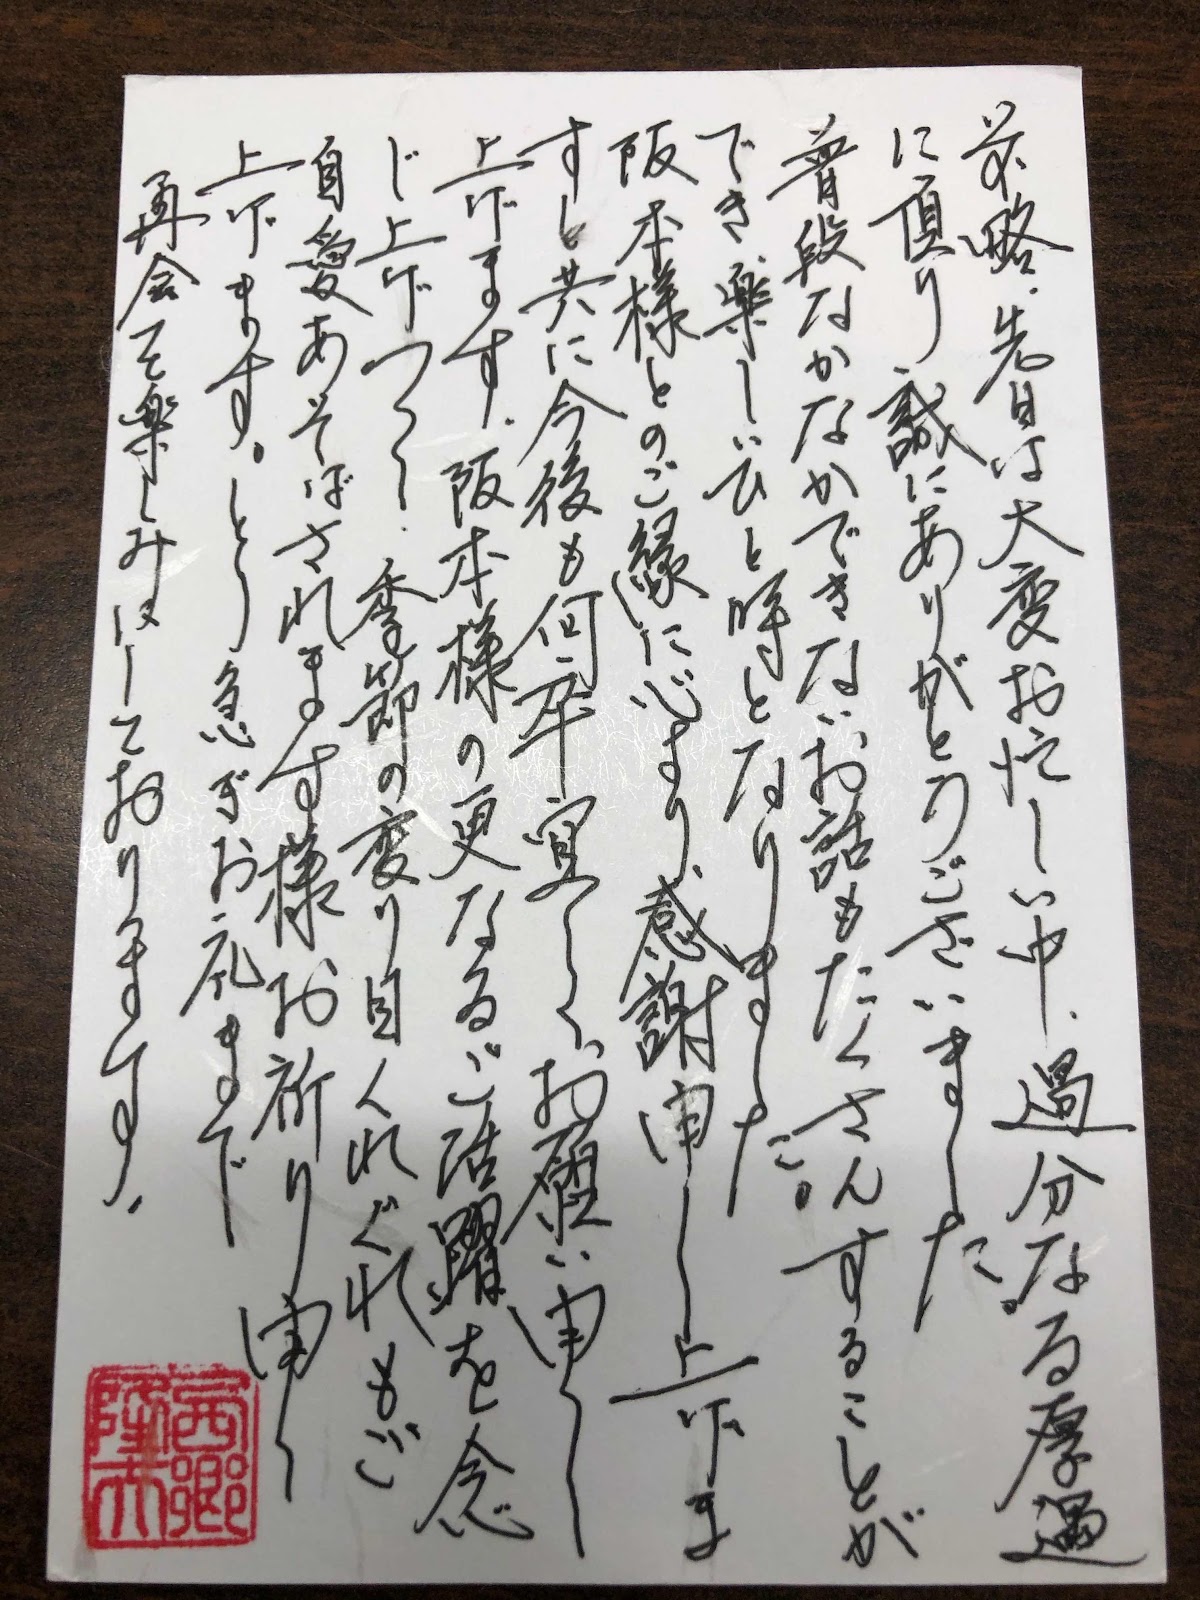 前略、先日は大変お忙しい中、過分なる厚遇
に頂り誠にありがとうございました。
普段なかなかできないお話もたくさんすることが
でき楽しいひと時となりました。
阪本様とのご縁に心より感謝申し上げま
すと共に今後も何卒宜しくお願い申し
上げます。阪本様の更なるご活躍を念
じ上げつつ、季節の変り目くれぐれもご
自愛あそばされます様お祈り申し
上げます。とり急ぎお礼まで
再会を楽しみにしております。
西郷
隆夫